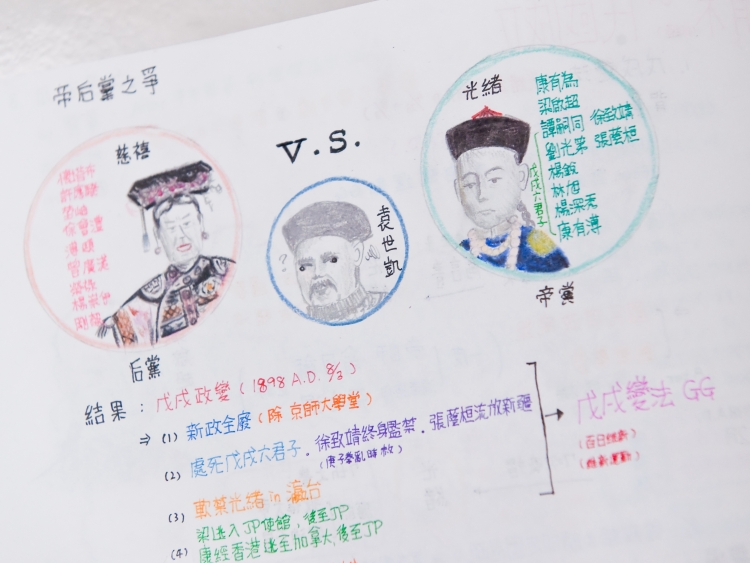 帝后黨之爭
慈禧
許應騤
徐會灃
曾廣漢
楊崇伊
剛毅
后黨
V.S.
袁世凱
?
光緒
康有為
梁啟超
譚嗣同 徐致靖
劉光第 張蔭桓
楊銳
林旭
楊深秀
康有溥
戊戌六君子
帝黨
結果：戊戌政變 (1898 A.D. 8/2)
⇒ (1) 新政全廢 (除 京師大學堂)
(2) 處死戊戌六君子、徐致靖終身監禁、張蔭桓流放新疆
(庚子拳亂時赦)
(3) 軟禁光緒 in 瀛台
(4) 梁逃入JP使館，後至JP
康經香港逃至加拿大，後至JP
→ 戊戌變法 GG
(百日維新)
(維新運動)